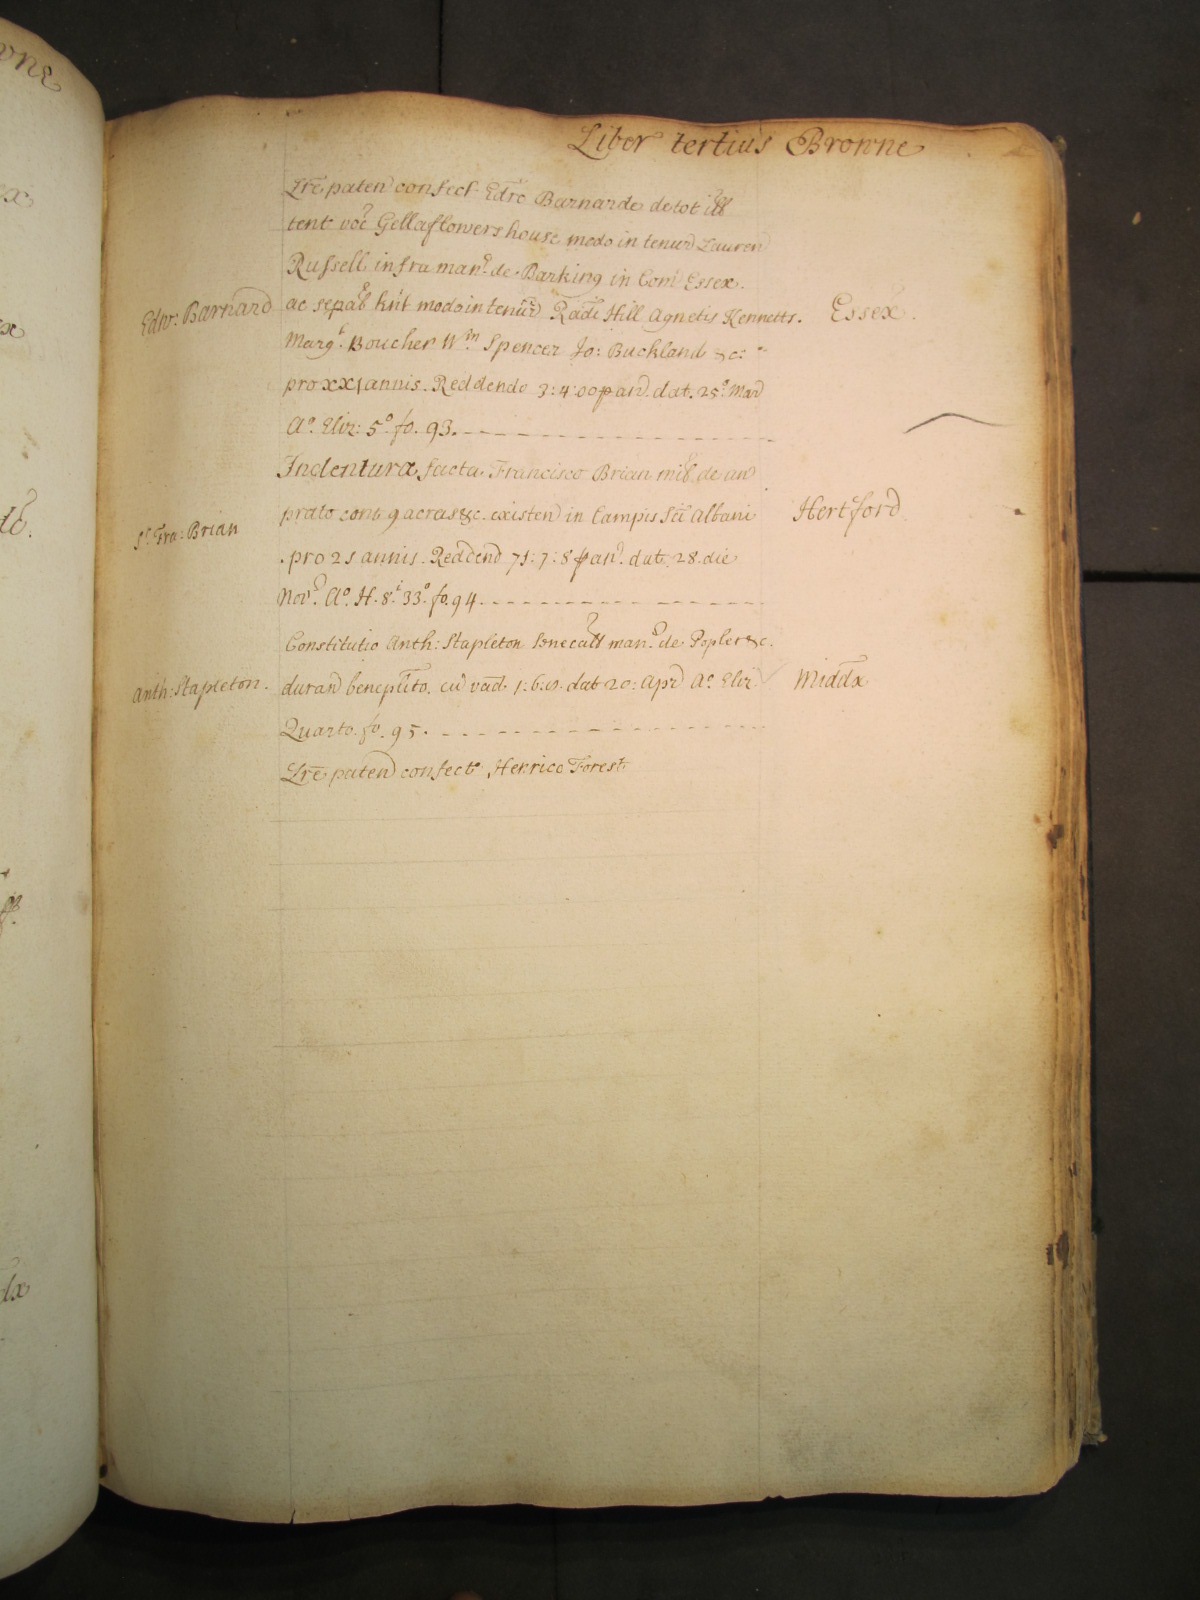 Liber tertius Browne
Lre paten confect Edro Barnarde de tot ill
tent voc Gellaflowers house modo in tenur Lauren
Russell infra man. de Barking in Com Essex.
Edw: Barnard ac sepab hut modo in tenur Radi Hill Agnetis Kennetts. Essex.
Marg. Boucher Wm Spencer Jo: Buckland &c:
pro xxj annis. Reddendo 3:4:00 p an. dat. 25o Mar
Ao. Eliz: 5o fo. 93.
Indentura facta Francisco Brian mil de un
Sr. Fra: Brian prato cont 9 acras &c. existen in Campis Sci Albani Hertford
pro 21 annis. Reddend 71:7:8 p an. dat. 28 die
Nov. Ao. H. 8i 33o fo. 94.
Constitutio Anth: Stapleton Senecall man. de Popler &c.
Anth: Stapleton. duran beneplito. cu vad. 1:6:0. dat 20: Apr Ao Eliz Middx
Quarto. fo. 95.
Lre paten confect Henrico Forest